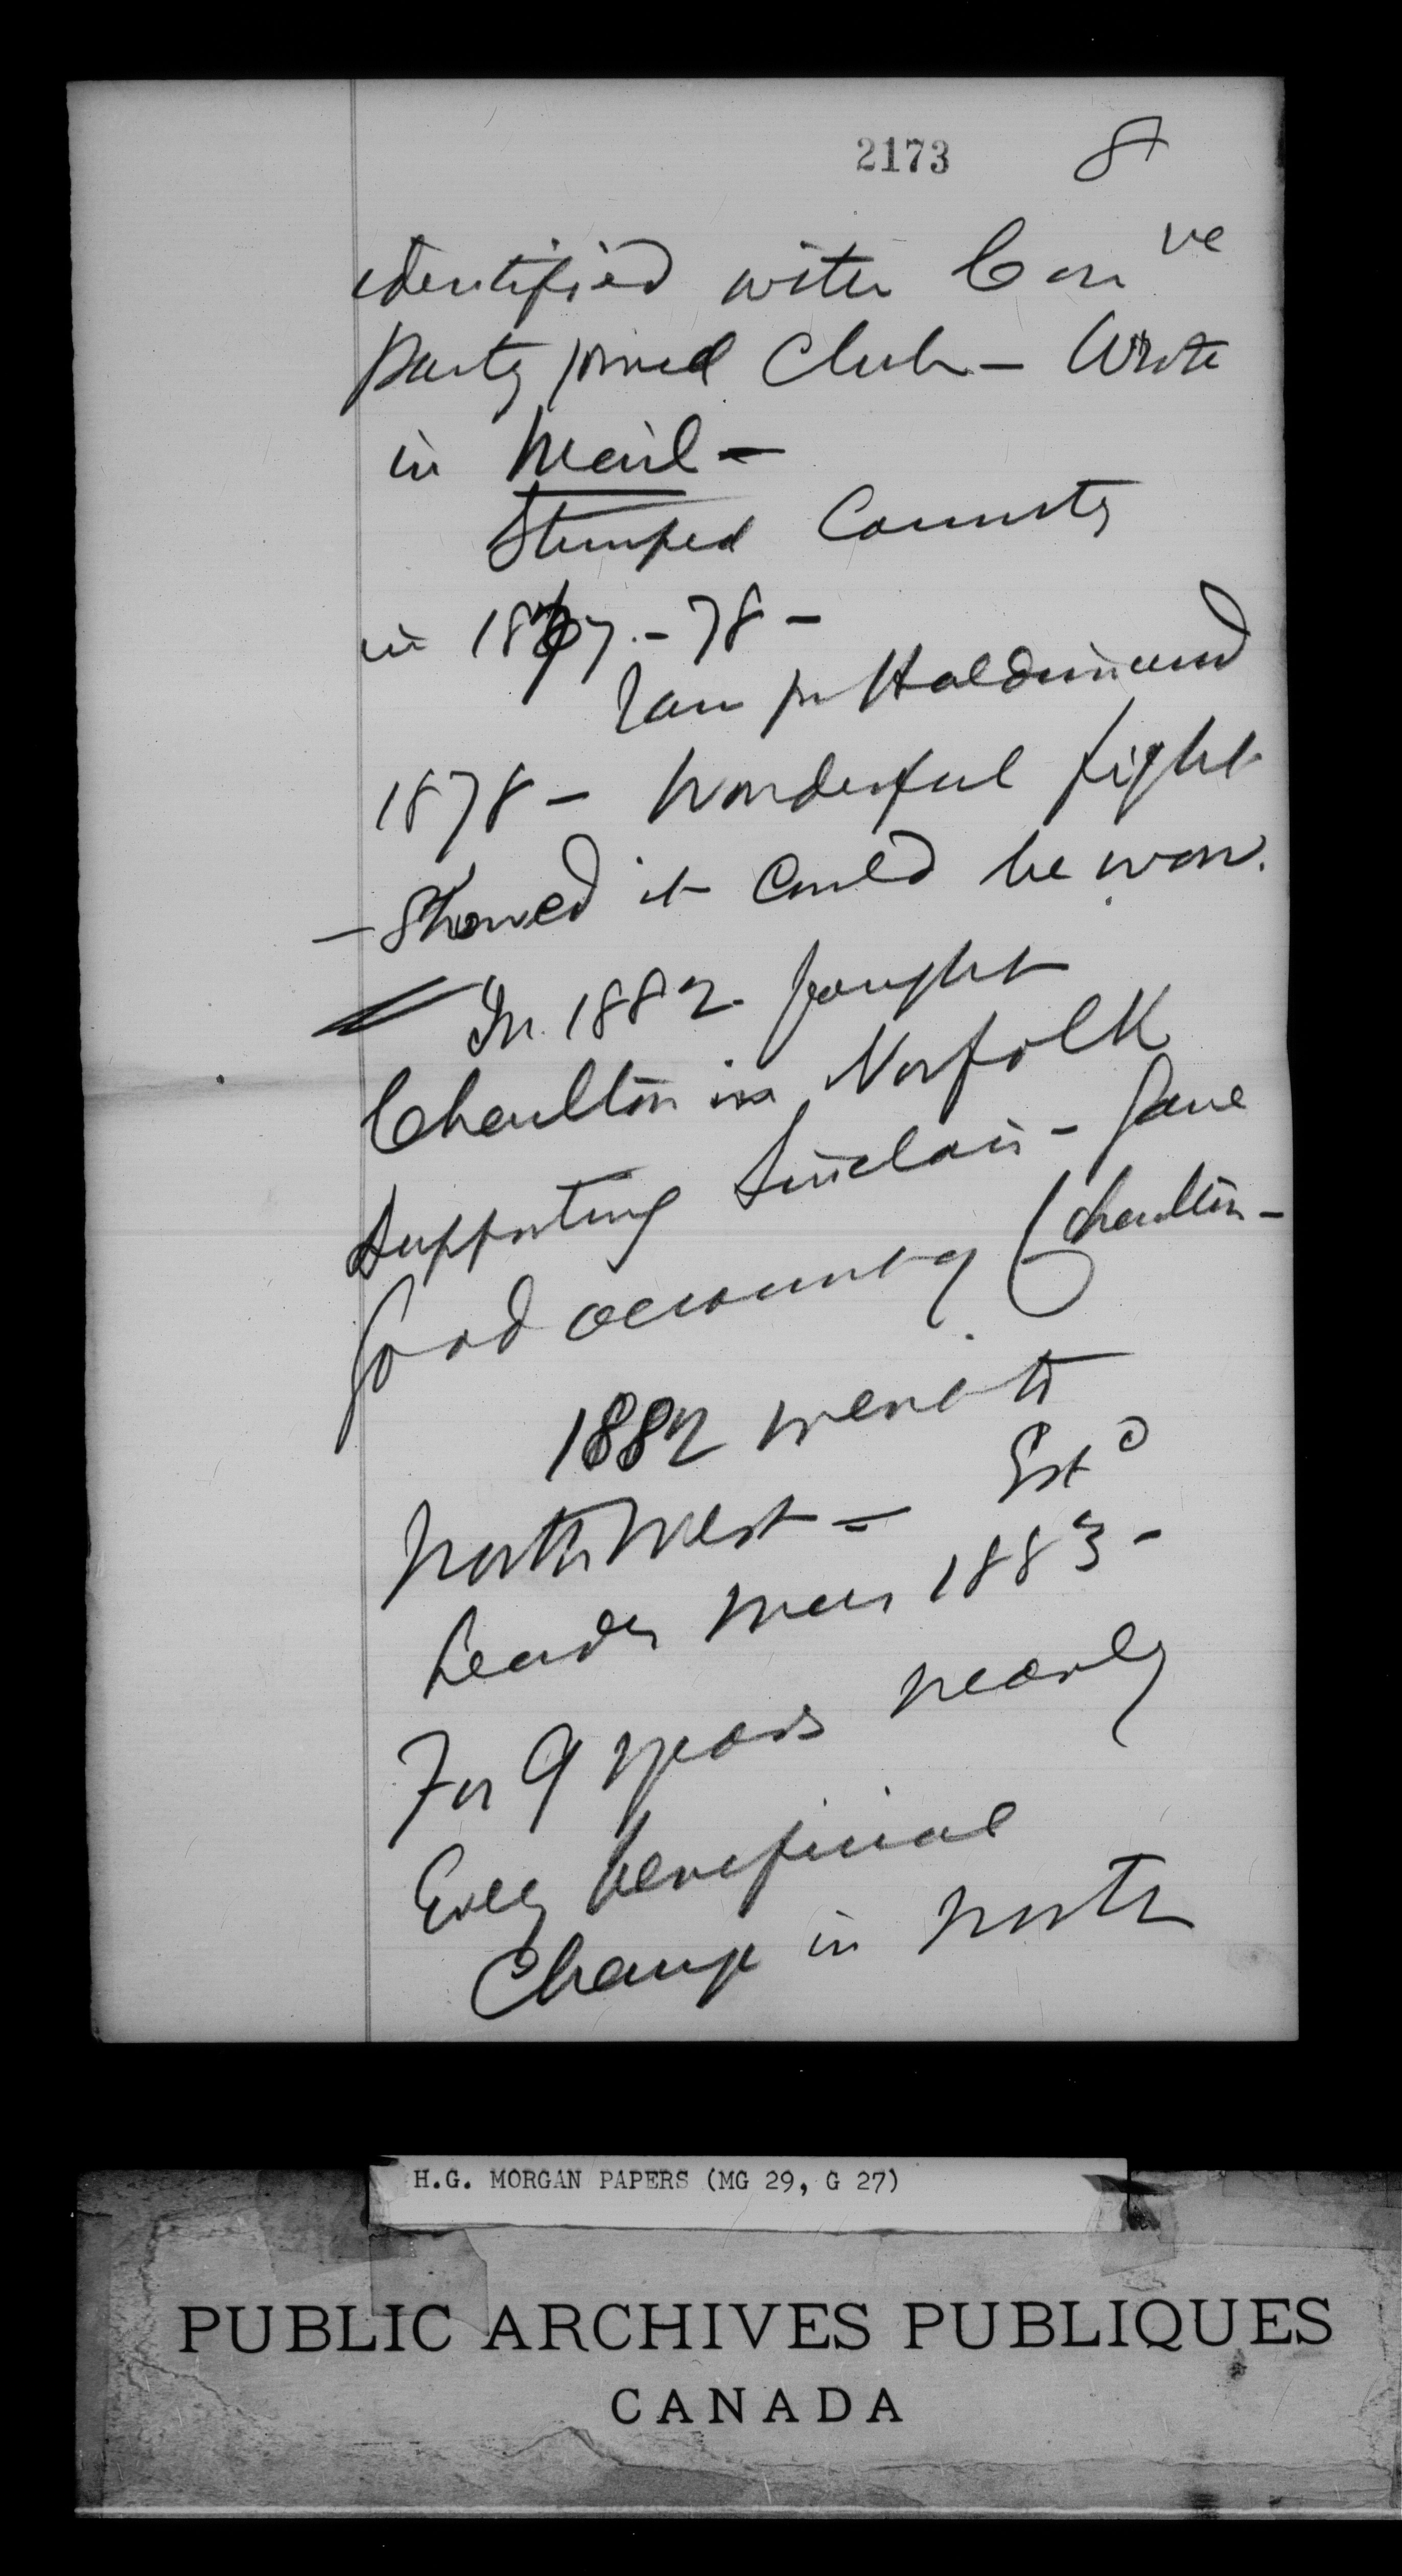 2173 8
identified with Con ve
party joined Club – Wrote
in Mail –
Stumped County
in 1877. – 78 –
Ran for Haldimand
1878 – Wonderful fight
– Showed it could be won.
In 1882 fought
Charlton in Norfolk
supporting Sinclair – Gave
good account of Charlton –
1882 went to
North West – Est d
Leader Mar 1883 –
For 9 years nearly
Every beneficial
Change in North
H.G. MORGAN PAPERS (MG 29, G 27)
PUBLIC ARCHIVES PUBLIQUES
CANADA